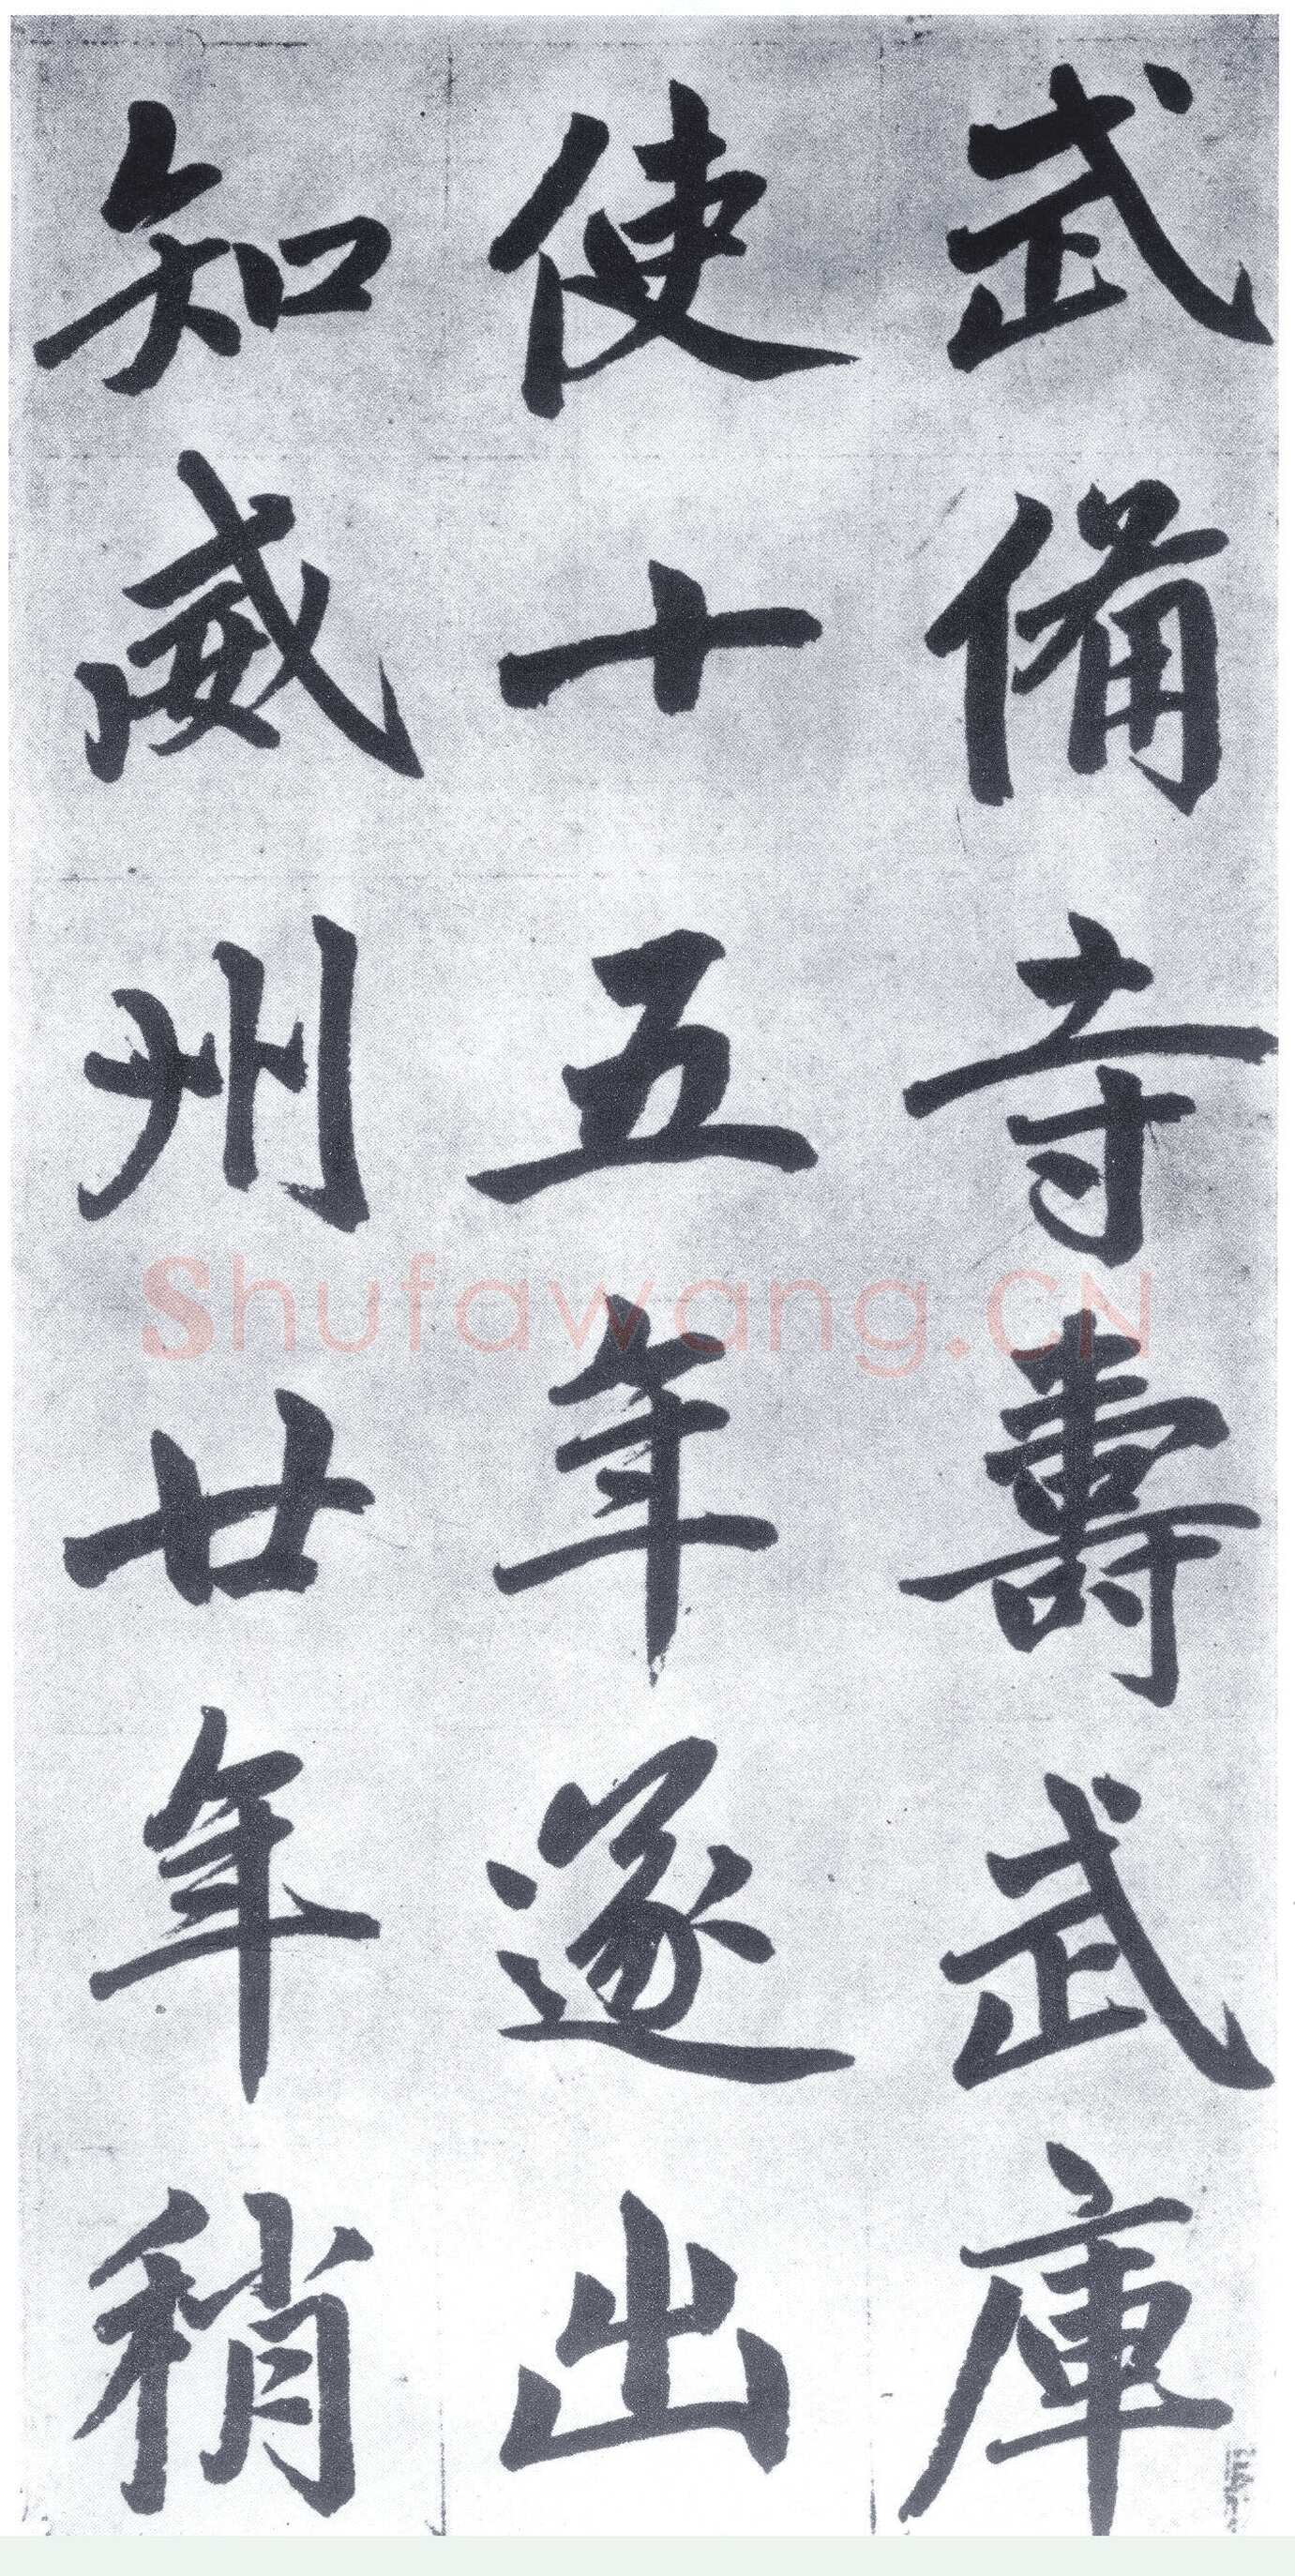 武備寺壽武庫
使十五年遂出
知威州廿年稍
Shufawang.CN